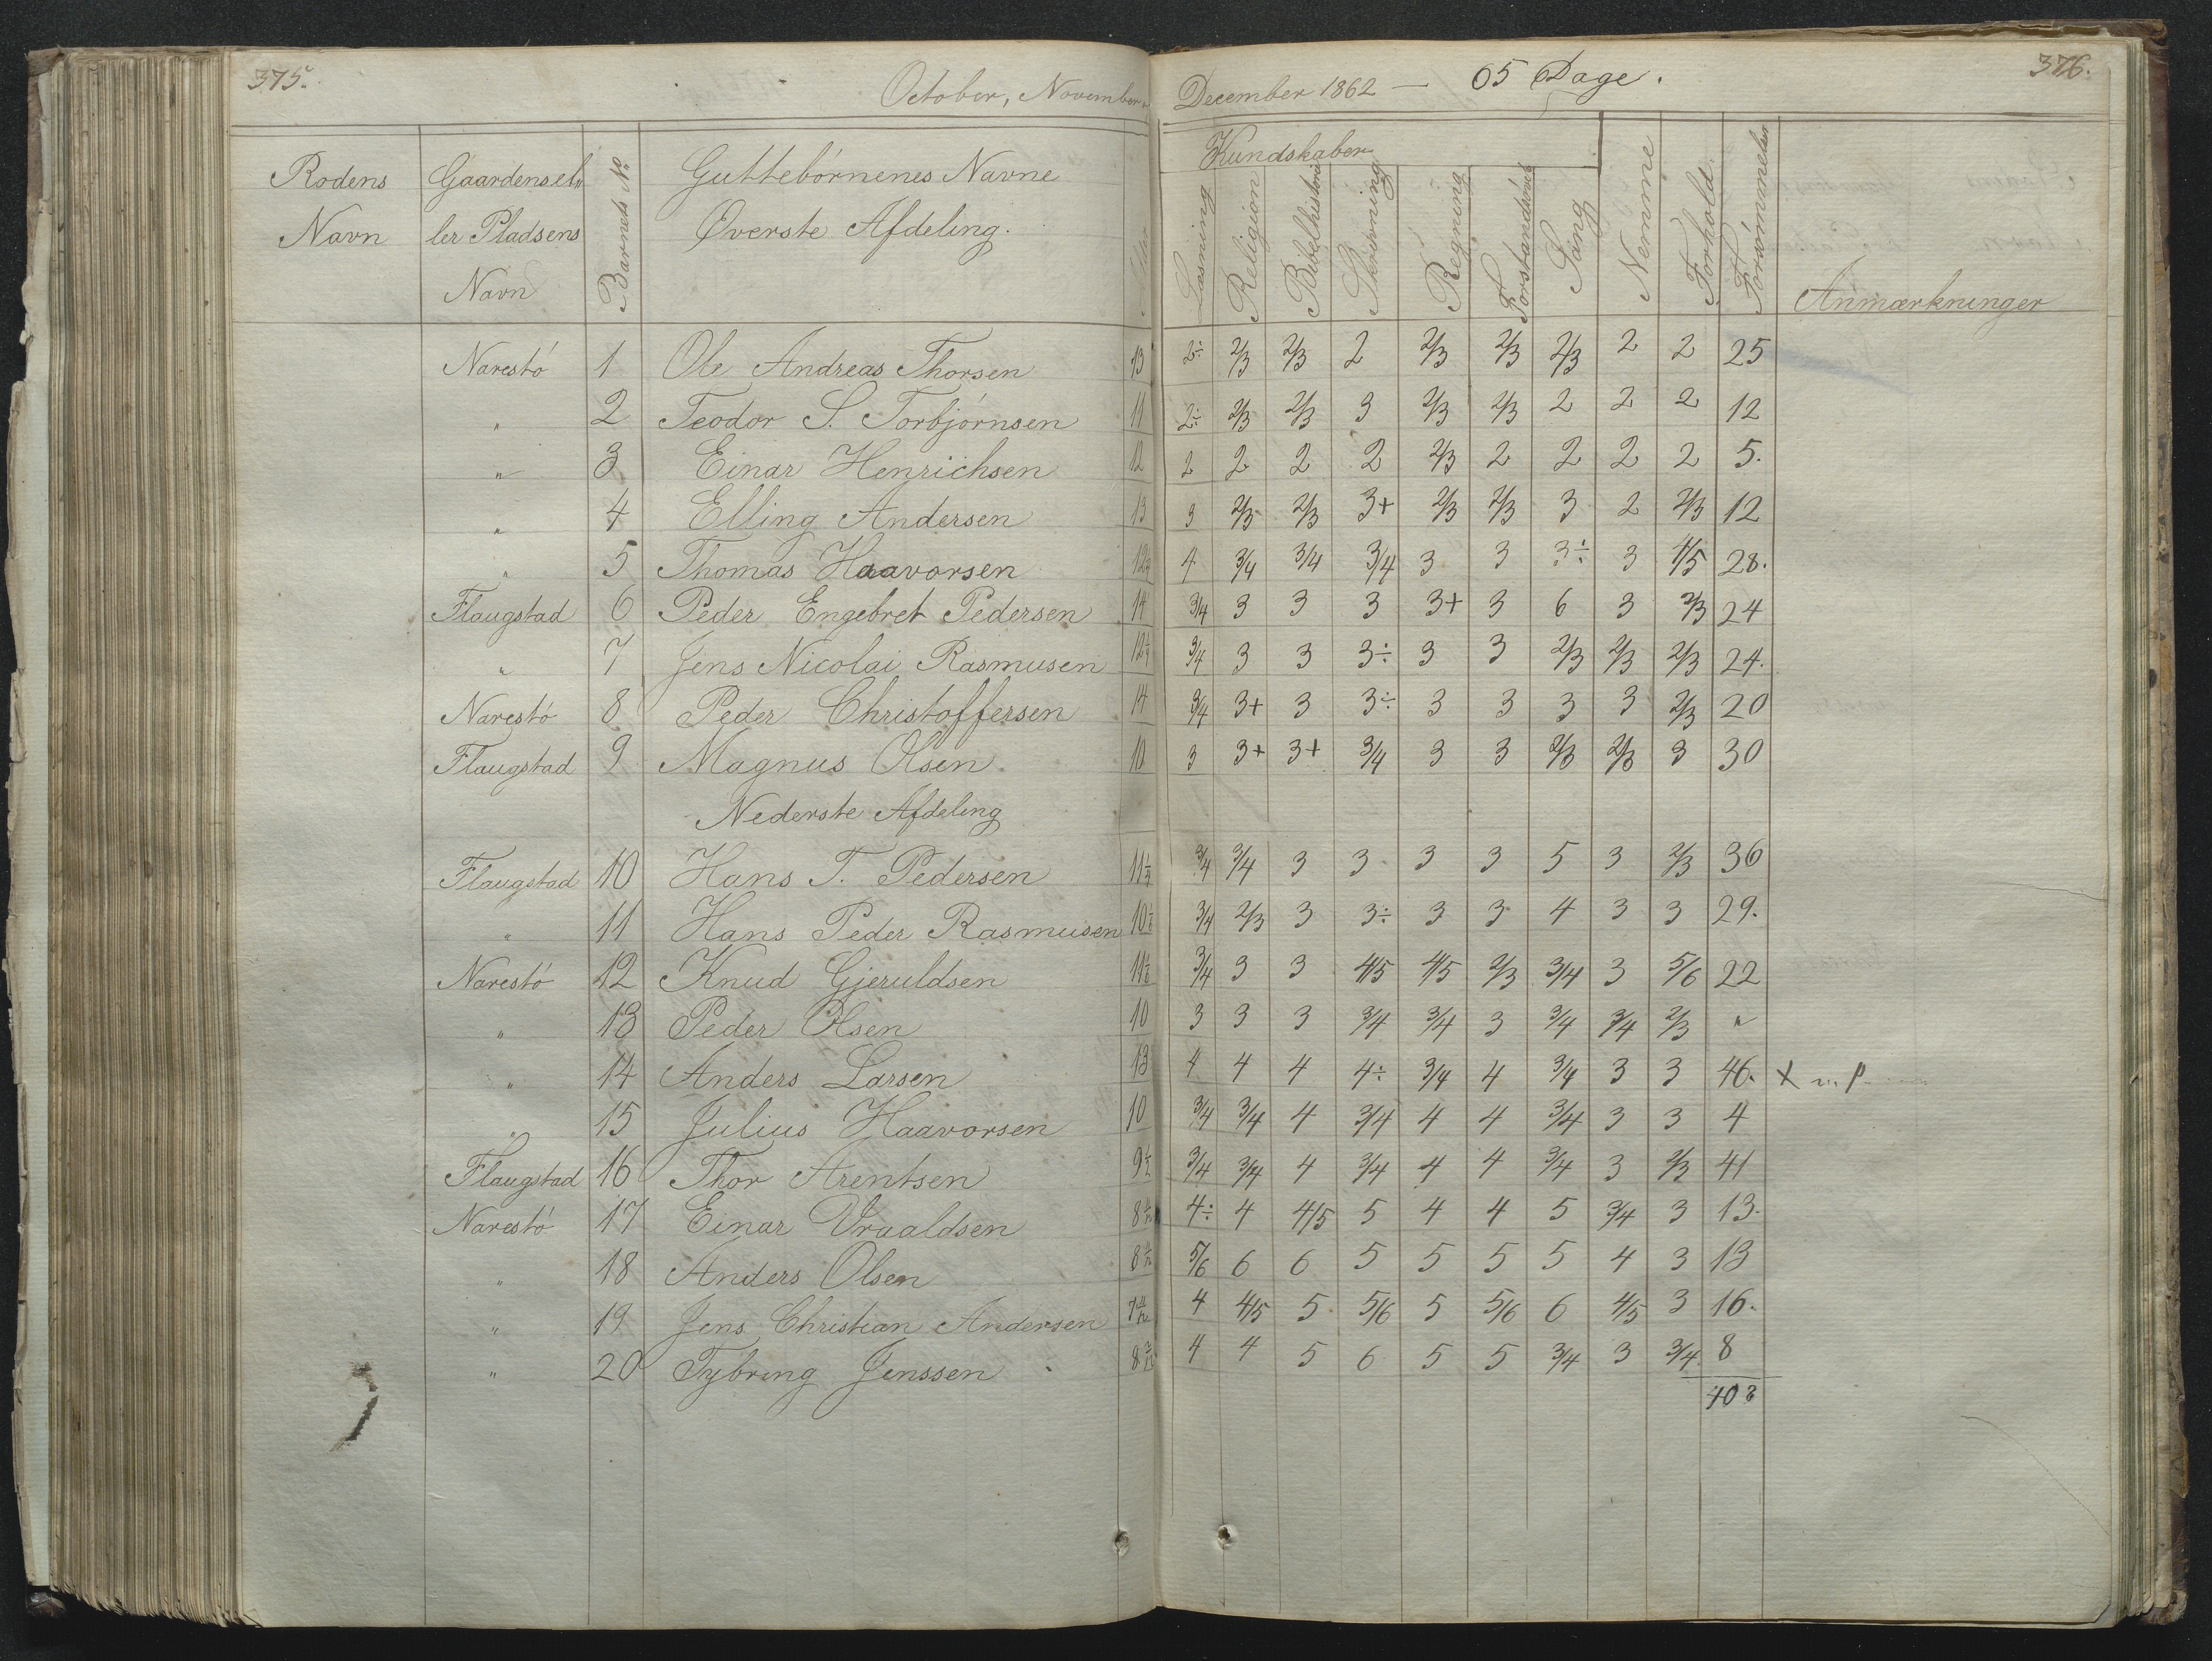 375. October, November December 1862 — 65 Dage. 376.
Rodens Navn | Gaardens el- ler Pladsens Navn | Barnets No | Guttebörnenes Navne Øverste Afdeling. | Alder | Kundskaber: Læsning | Religion | Bibelhistorie | Skrivning | Regning | Forstandsövels | Sang | Nemme | Forhold | Forsömmelser | Anmærkninger
Narestö 1 Ole Andreas Thorsen 13 2÷ 2/3 2/3 2 2/3 2/3 2/3 2 2 25
" 2 Teodor S. Torbjörnsen 11 2÷ 2/3 2/3 3 2/3 2/3 2 2 2 12
" 3 Einar Henrichsen 12 2 2 2 2 2/3 2 2 2 2 5.
" 4 Elling Andersen 13 3 2/3 2/3 3+ 2/3 2/3 3 2 2/3 12
" 5 Thomas Haavorsen 4 3/4 3/4 3/4 3 3 3÷ 3 4/5 28.
Flaugstad 6 Peder Engebret Pedersen 14 3/4 3 3 3 3+ 3 6 3 2/3 24
" 7 Jens Nicolai Rasmusen 3/4 3 3 3÷ 3 3 2/3 2/3 2/3 24.
Narestö 8 Peder Christoffersen 14 3/4 3+ 3 3÷ 3 3 3 3 2/3 20
Flaugstad 9 Magnus Olsen 10 3 3+ 3+ 3/4 3 3 2/3 2/3 3 30
Nederste Afdeling
Flaugstad 10 Hans T. Pedersen 3/4 3/4 3 3 3 3 5 3 2/3 36
" 11 Hans Peder Rasmusen 3/4 2/3 3 3÷ 3 3 4 3 3 29.
Narestö 12 Knud Gjeruldsen 3/4 3 3 4/5 4/5 2/3 3/4 3 5/6 22
" 13 Peder Olsen 10 3 3 3 3/4 3/4 3 3/4 3/4 2/3 "
" 14 Anders Larsen 13 4 4 4 4÷ 3/4 4 3/4 3 3 46. X
" 15 Julius Haavorsen 10 3/4 3/4 4 3/4 4 4 3/4 3 3 4
Flaugstad 16 Thor Arentsen 9½ 3/4 3/4 4 3/4 4 4 3/4 3 2/3 41
Narestö 17 Einar Vraaldsen 4÷ 4 4/5 5 4 4 5 3/4 3 13.
" 18 Anders Olsen 5/6 6 6 5 5 5 5 4 3 13
" 19 Jens Christian Andersen 4 4/5 5 5/6 5 5/6 6 4/5 3 16.
" 20 Tybring Jenssen 4 4 5 6 5 5 3/4 3 3/4 8
408